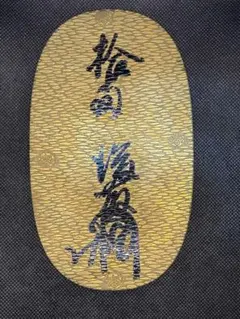 拾両 後藤